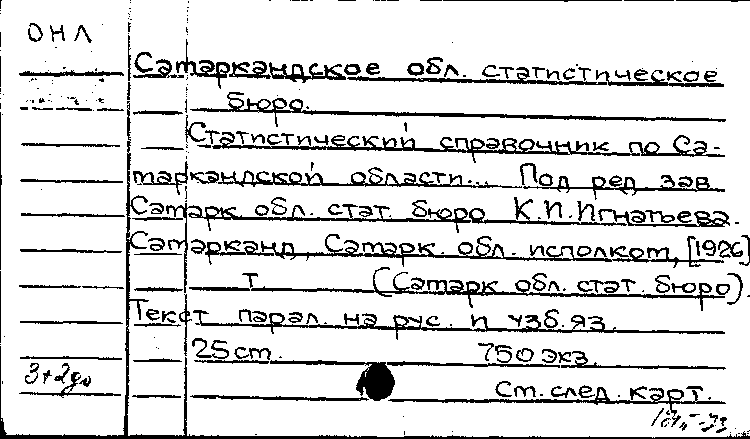 ОНЛ
Самаркандское обл. статистическое
бюро.
Статистический справочник по Са-
маркандской области... Под ред. зав.
Самарк. обл. стат. бюро К.П.Игнатьева.
Самарканд, Самарк. обл. исполком, [1926]
т. (Самарк. обл. стат. бюро).
Текст парал. на рус. и узб. яз.
25 см. 750 экз.
См. след. карт.